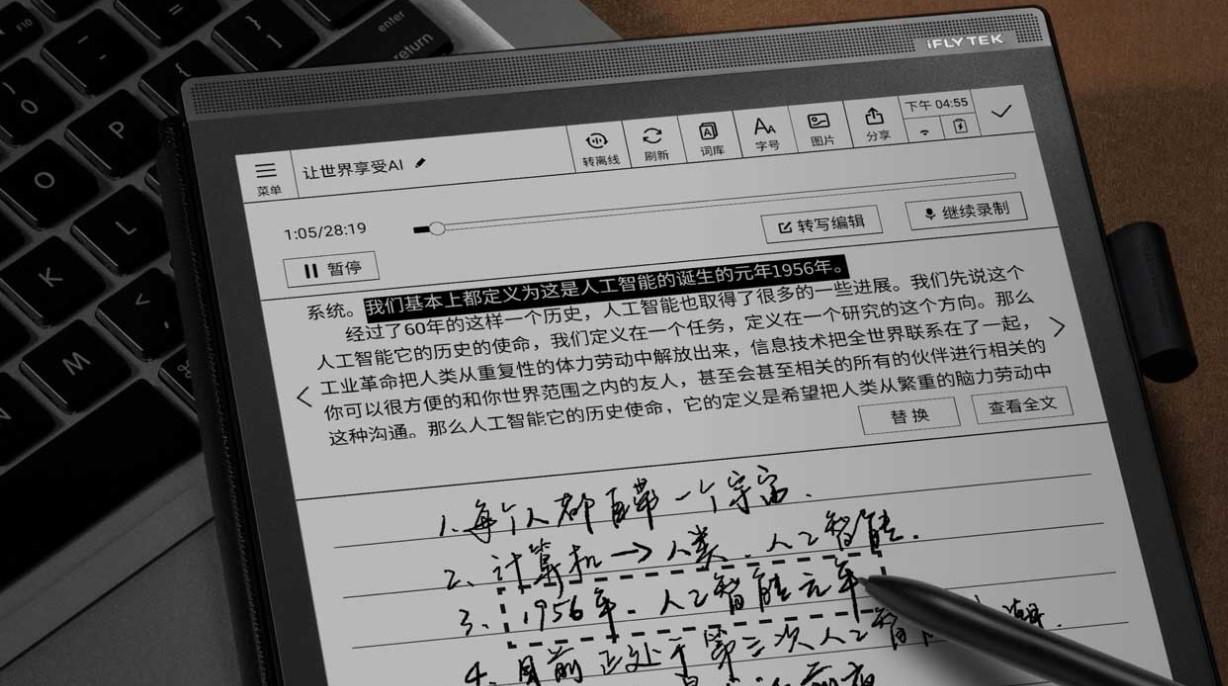 F10
enter
return
P
O
L
K
M
iFLYTEK
菜单
让世界享受AI
转离线
刷新
词库
字号
图片
分享
下午 04:55
1:05/28:19
转写编辑
继续录制
暂停
系统。我们基本上都定义为这是人工智能的诞生的元年1956年。
经过了60年的这样一个历史，人工智能也取得了很多的一些进展。我们先说这个
人工智能它的历史的使命，我们定义在一个任务，定义在一个研究的这个方向。那么
工业革命把人类从重复性的体力劳动中解放出来，信息技术把全世界联系在了一起，
你可以很方便的和你世界范围之内的友人，甚至会甚至相关的所有的伙伴进行相关的
这种沟通。那么人工智能它的历史使命，它的定义是希望把人类从繁重的脑力劳动中
替换
查看全文
1、每个人都自带一个宇宙.
2、计算机→人类、人工智能.
3、1956年、人工智能元年
4、目前正处于第三次人工智能